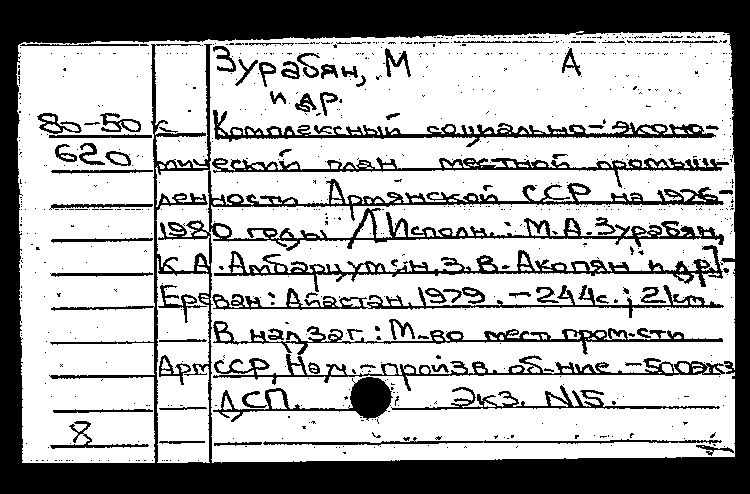 Зурабян, М А
и др.
80-50 к Комплексный социально-эконо-
620 мический план местной промыш-
ленности Армянской ССР на 1976-
1980 годы / [Исполн.: М.А. Зурабян,
К.А. Амбарцумян, З.В. Акопян и др.].-
Ереван: Айастан, 1979. - 244с.; 21см.
В надзаг.: М-во мест. пром-сти
АрмССР, Науч.-произв. об-ние. - 500экз
ДСП. Экз. N15.
8